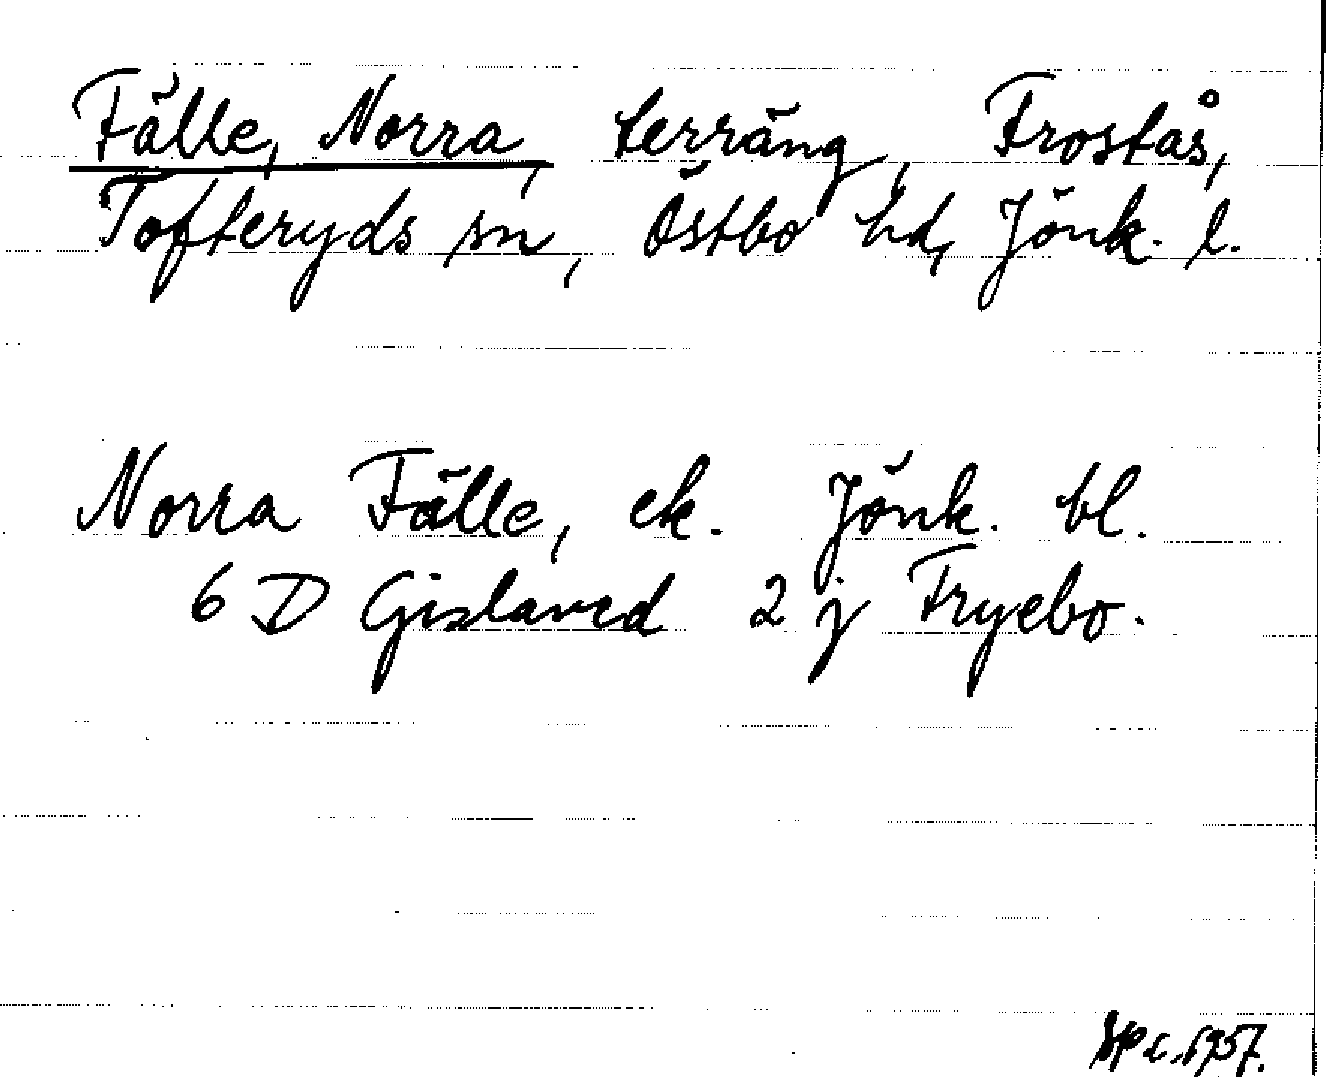 Fälle, Norra, terräng, Frostås,
Tofteryds sn, Östbo hd, Jönk. l.
Norra Fälle, ek. Jönk. bl.
6 D Gislaved 2 j Fryebo.
1957.